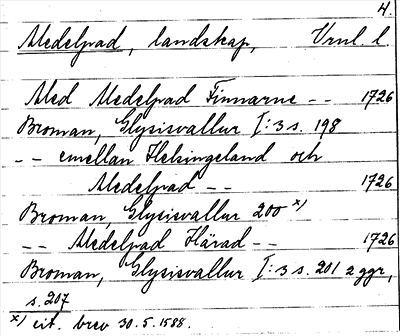 4.
Medelpad, landskap, Vrnl. l.
Med Medelpad Finnarne -- 1726
Broman, Glysisvallur I:3 s. 198
-- emellan Helsingeland och
Medelpad -- 1726
Broman, Glysisvallur 200 x)
-- Medelpad Härad -- 1726
Broman, Glysisvallur I:3 s. 201 2 ggr,
s. 207
x) cit. brev 30.5.1588.